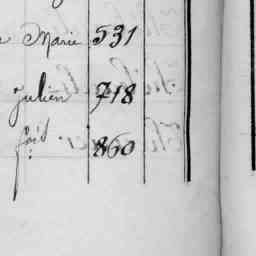 Marie 531
Julien 718
foit. 860